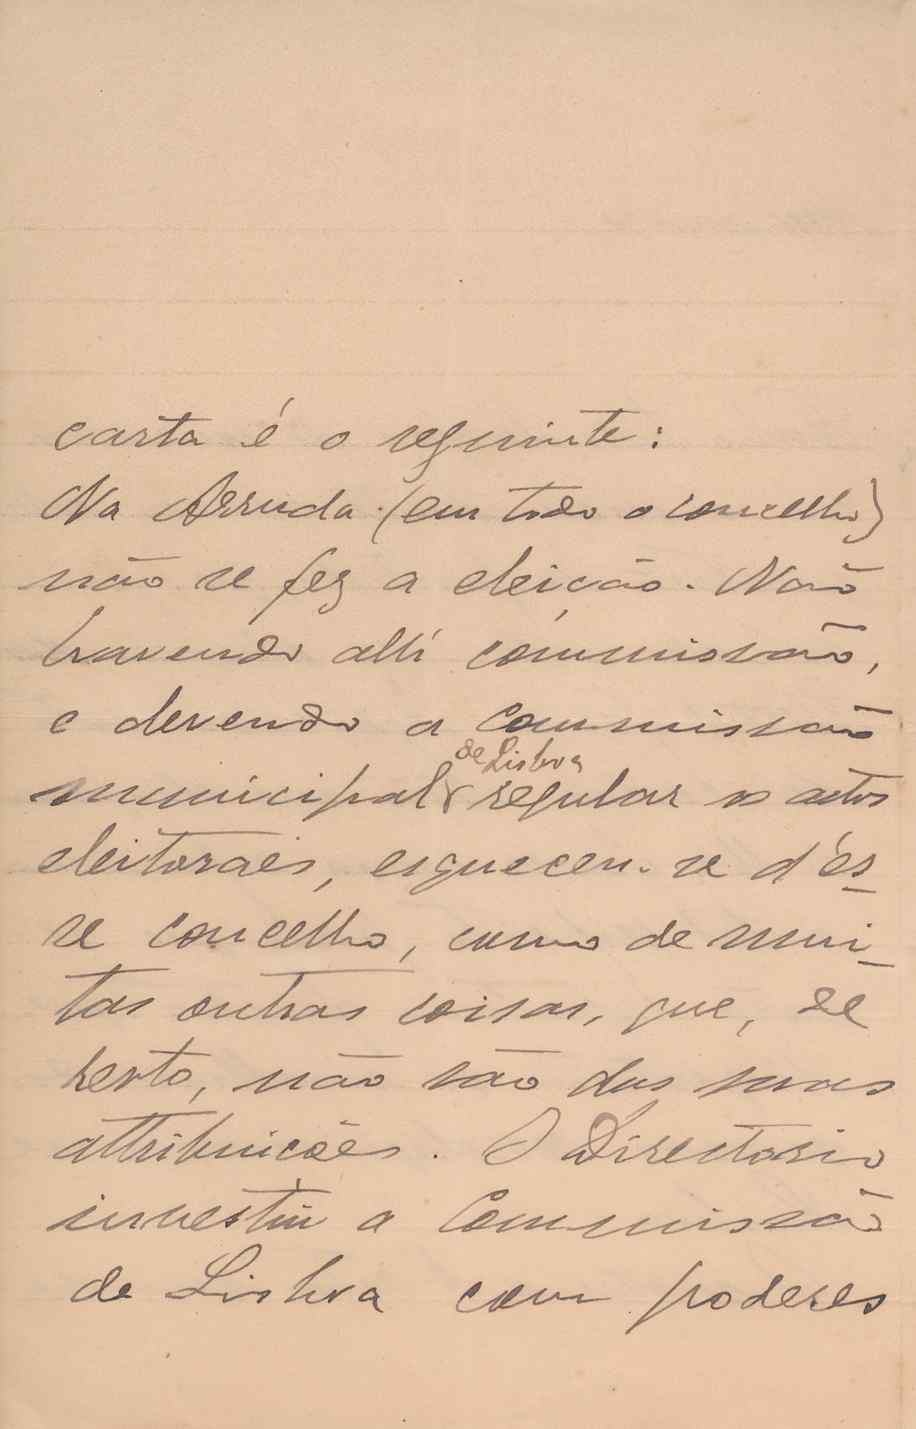 carta é o seguinte:
Na Arruda (em todo o concelho)
não se fez a eleição. Não
havendo alli commissão,
e devendo a Commissão
municipal de Lisboa regular os actos
eleitoraes, esqueceu-se d'és-
se concelho, como de mui-
tas outras coisas, que, de
resto, não são das suas
attribuições. O Directorio
investiu a Commissão
de Lisboa com poderes